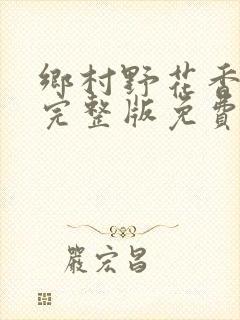 鄉村野花香
完整版免費
嚴宏昌